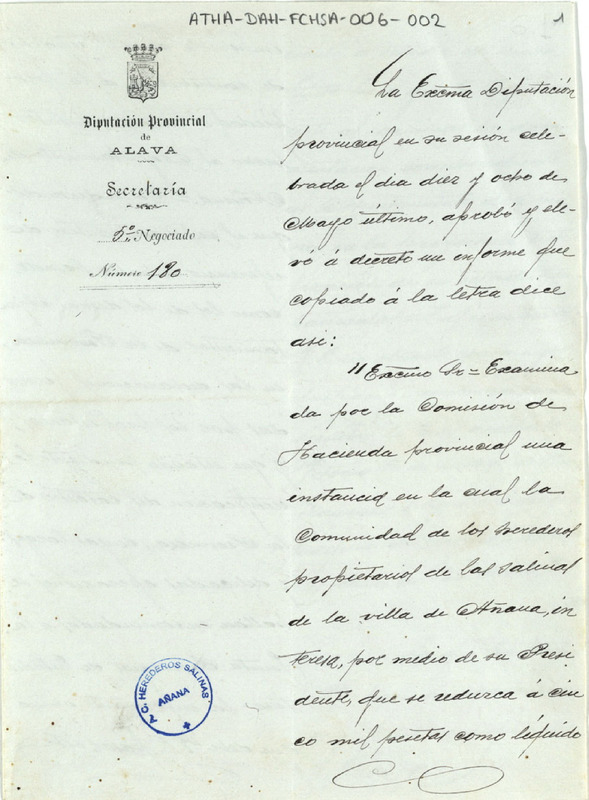 ATHA-DAH-FCHSA-006-002
1
Diputación Provincial
de
ALAVA
Secretaría
5º Negociado
Número 180
La Excma Diputación
provincial en su sesión cele-
brada el dia diez y ocho de
Mayo último, aprobó y ele-
vó á decreto un informe que
copiado á la letra dice
asi:
"Excmo Sr= Examina
da por la Comisión de
Hacienda provincial una
instancia en la cual la
Comunidad de los herederos
propietarios de las salinas
de la villa de Añana, in
teresa, por medio de su Presi
dente, que se reduzca á cin
co mil pesetas como líquido
C. HEREDEROS SALINAS
AÑANA